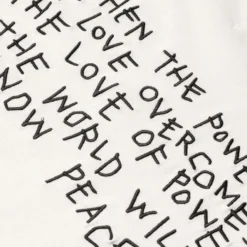 HEN THE POWE
LOVE OVERCOME
THE LOVE OF POWE
THE WORLD WILL
NOW PEAC